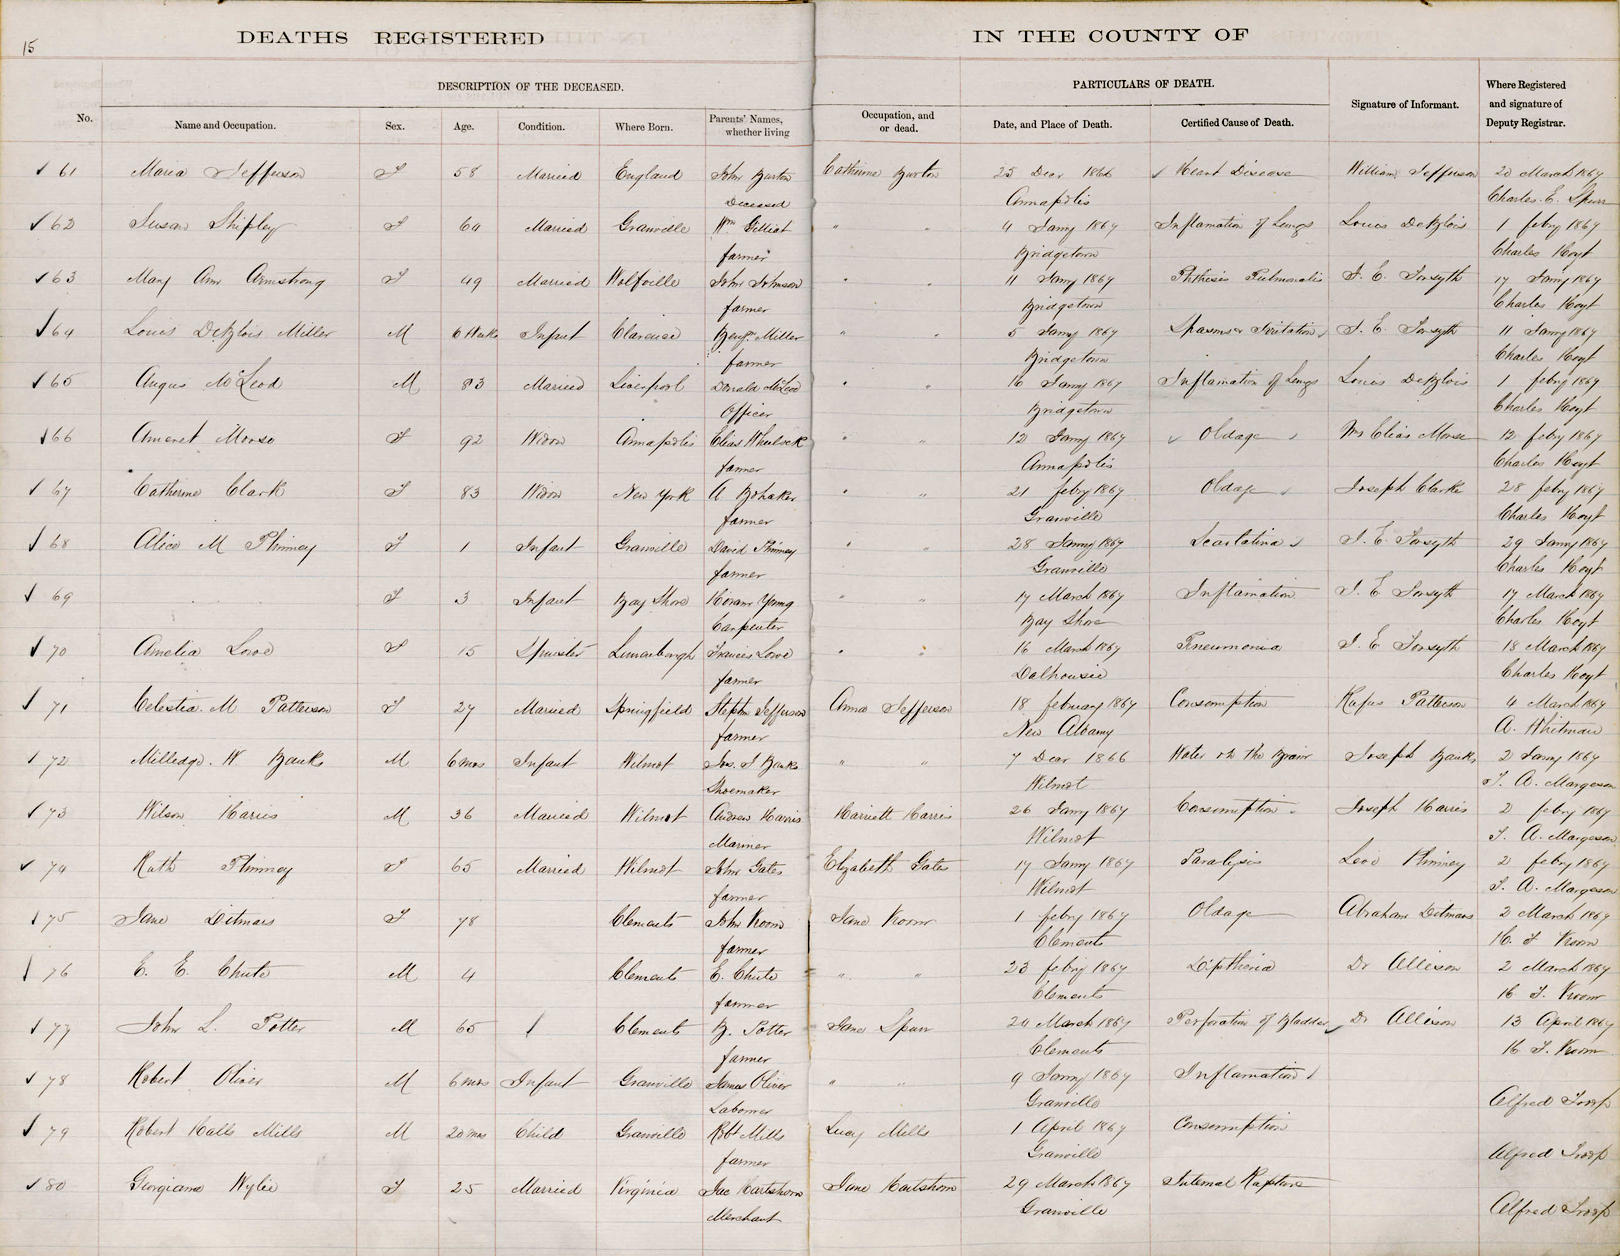 15
DEATHS REGISTERED IN THE COUNTY OF
DESCRIPTION OF THE DECEASED. PARTICULARS OF DEATH.
No. Name and Occupation. Sex. Age. Condition. Where Born. Parents' Names, whether living Occupation, and or dead. Date, and Place of Death. Certified Cause of Death. Signature of Informant. Where Registered and signature of Deputy Registrar.
61 Maria Jefferson F 58 Married England John Burton Catherine Burton 25 Decr 1866 Heart Disease William Jefferson 20 March 1867
Deceased Annapolis Charles E. Spurr
62 Susan Shipley F 60 Married Granville Wm Gilliat " " 4 Jany 1867 Inflamation of Lungs Louis DeBlois 1 feby 1867
farmer Bridgetown Charles Hoyt
63 Mary Ann Armstrong F 49 Married Wolfville John Johnson " " 11 Jany 1867 Phthisis Pulmonalis J. E. Forsyth 17 Jany 1867
farmer Bridgetown Charles Hoyt
64 Louis DeBlois Miller M 6 Weeks Infant Clarence Benj. Miller " " 5 Jany 1867 Spasms & Iritation J. E. Forsyth 11 Jany 1867
farmer Bridgetown Charles Hoyt
65 Angus McLeod M 83 Married Liverpool Donald McLeod " " 16 Jany 1867 Inflamation of Lungs Louis DeBlois 1 feby 1867
Officer Bridgetown Charles Hoyt
66 Ameret Morse F 92 Widow Annapolis Elias Wheelock " " 12 Jany 1867 Oldage Mrs Elias Morse 12 feby 1867
farmer Annapolis Charles Hoyt
67 Catherine Clark F 83 Widow New York A Bohaker " " 21 feby 1867 Oldage Joseph Clarke 28 feby 1867
farmer Granville Charles Hoyt
68 Alice M Phinney F 1 Infant Granville David Phinney " " 28 Jany 1867 Scarlatina J. E. Forsyth 29 Jany 1867
farmer Granville Charles Hoyt
69 F 3 Infant Bay Shore Hiram Young " " 17 March 1867 Inflamation J. E Forsyth 17 March 1867
Carpenter Bay Shore Charles Hoyt
70 Amelia Lowe F 15 Spinster Lunenburgh Francis Lowe " " 16 March 1867 Pneumonia J. E Forsyth 18 March 1867
farmer Dalhousie Charles Hoyt
71 Celestia. M Patterson F 27 Married Springfield Stephen Jefferson Anna Jefferson 18 february 1867 Consumption Rufus Patterson 4 March 1867
farmer New Albany A. Whitman
72 Milledge. W Banks M 6 mos Infant Wilmot Jos. S Banks " " 7 Decr 1866 Water on the Brain Joseph Banks 2 Jany 1867
Shoemaker Wilmot T. A. Margeson
73 Wilson Harris M 36 Married Wilmot Andrew Harris Harriett Harris 26 Jany 1867 Consumption Joseph Harris 2 feby 1867
Mariner Wilmot T. A. Margeson
74 Ruth Phinney F 65 Married Wilmot John Gates Elizabeth Gates 17 Jany 1867 Paralysis Levi Phinney 2 feby 1867
farmer Wilmot T. A. Margeson
75 Jane Ditmars F 78 Clements John Vroom Jane Vroom 1 feby 1867 Oldage Abraham Ditmars 2 March 1867
farmer Clements H. T Vroom
76 E. E. Chute M 4 Clements E. Chute " " 23 feby 1867 Diptheria Dr Allison 2 March 1867
farmer Clements H. T. Vroom
77 John L. Potter M 65 / Clements B. Potter Jane Spurr 24 March 1867 Perforation of Bladder Dr Allison 13 April 1867
farmer Clements H. T. Vroom
78 Robert Oliver M 6 mos Infant Granville James Oliver " " 9 Jany 1867 Inflamation
Laborer Granville Alfred Troop
79 Robert Halls Mills M 20 mos Child Granville Robt Mills Lucy Mills 1 April 1867 Consumption
farmer Granville Alfred Troop
80 Georgiana Wylie F 25 Married Virginia Jac Hartshorn Jane Hartshorn 29 March 1867 Internal Rupture
Merchant Granville Alfred Troop